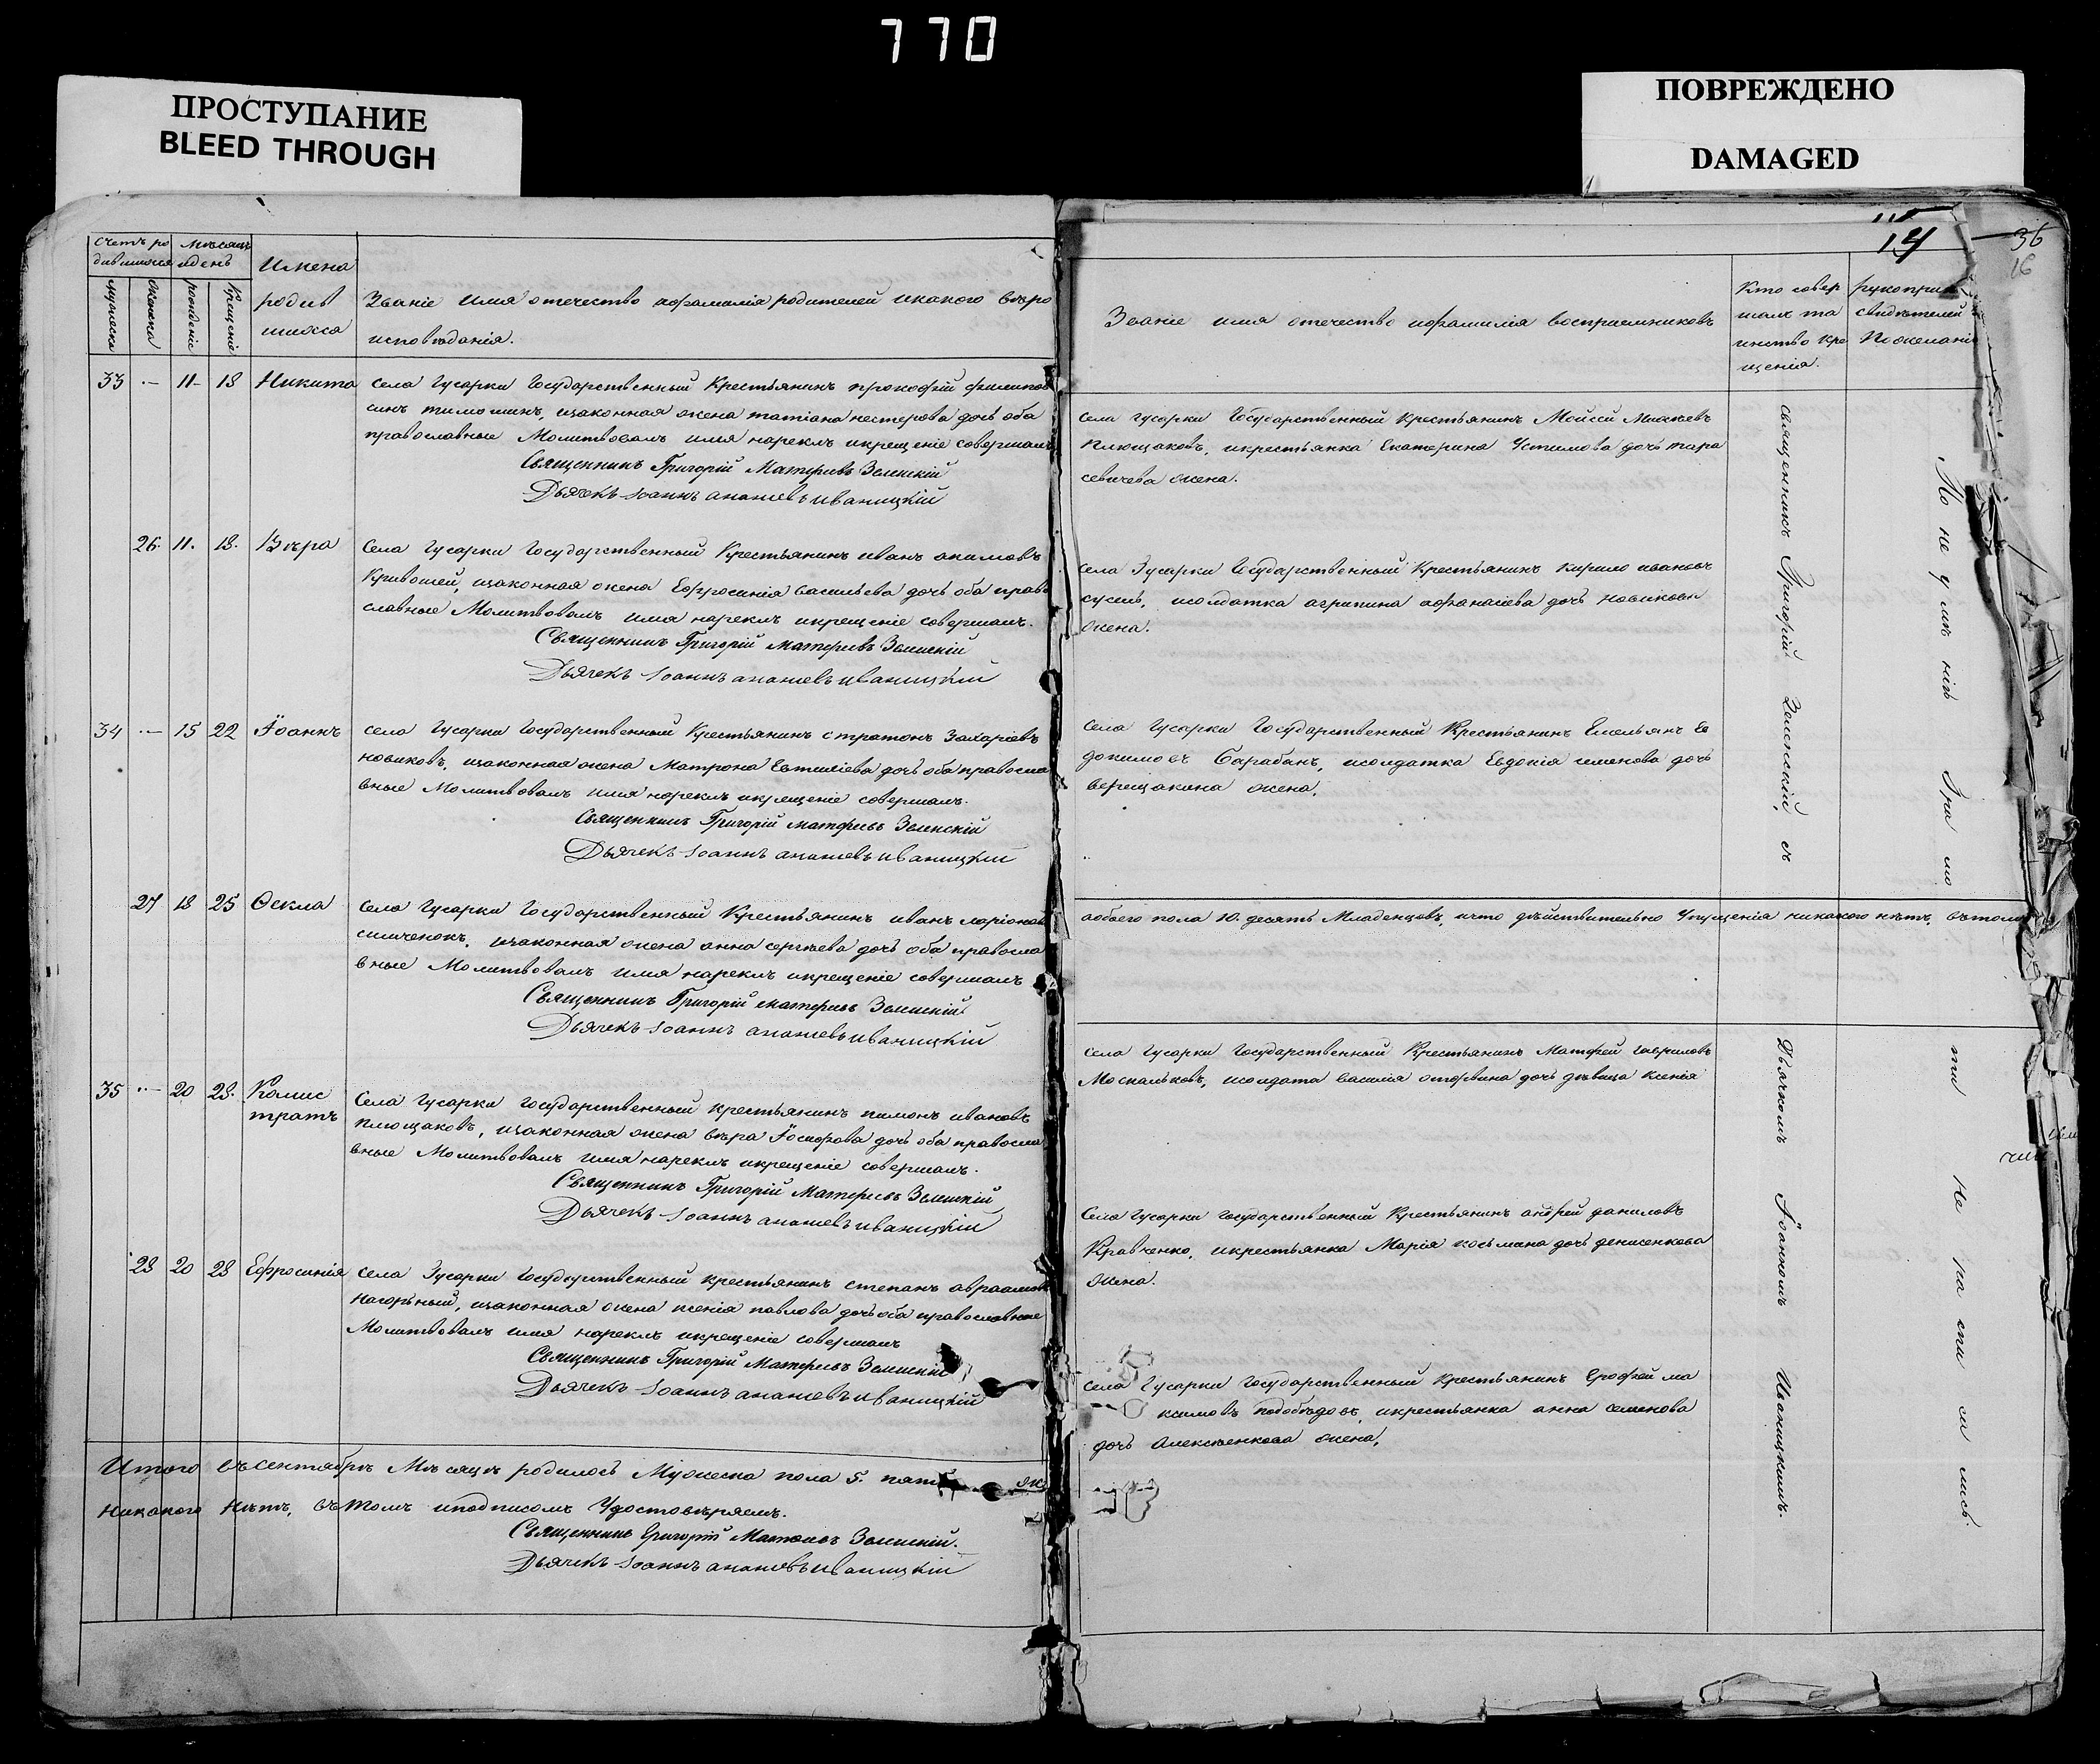 770
ПРОСТУПАНИЕ
BLEED THROUGH
ПОВРЕЖДЕНО
DAMAGED
Счетъ ро
дившихся
Мѣсяцъ
и день
Имена
родив
шихся
мужеска
женска
рожденіе
крещеніе
Званіе имя отечество ифамилія родителей икакого вѣро
исповѣданія.
33 11 18 Никита Села Гусарки Государственный Крестьянинъ прокофій филипов
сынъ тимошинъ, изаконная жена татіана нестерова дочь оба
православные Молитвовалъ имя нарекъ икрещеніе совершалъ
Священникъ Григорій Матфеевъ Зеленскій
Дьячекъ Іоаннъ ананіевъ иваницкій
26. 11. 18. Вѣра Села Гусарки Государственный Крестьянинъ иванъ акимовъ
Кривошей, изаконная жена Ефросинія васильева дочь оба право
славные Молитвовалъ имя нарекъ икрещеніе совершалъ.
Священникъ Григорій Матфеевъ Зеленскій
Дьячекъ Іоаннъ ананіевъ иваницкій
34 15 22 Іоаннъ села Гусарки Государственный Крестьянинъ стратонъ Захаріевъ
новиковъ, изаконная жена Матрона Евтихіева дочь оба правосла
вные Молитвовалъ имя нарекъ икрещеніе совершалъ.
Священникъ Григорій матфеевъ Зеленскій
Дьячекъ Іоаннъ ананіевъ иваницкій
27 18 25 Ѳекла Села Гусарки Государственный Крестьянинъ иванъ ларіонов
симченокъ, изаконная жена анна сергѣева дочь оба правосла
вные Молитвовалъ имя нарекъ икрещеніе совершалъ
Священникъ Григорій матфеевъ Зеленскій
Дьячекъ Іоаннъ ананіевъ иваницкій
35 20 28. Калис
тратъ
Села Гусарки Государственный крестьянинъ пимонъ ивановъ
плющаковъ, изаконная жена вѣра Іосифова дочь оба правосла
вные Молитвовалъ имя нарекъ икрещеніе совершалъ.
Священникъ Григорій Матфеевъ Зеленскій
Дьячекъ Іоаннъ ананіевъ иваницкій
28 20 28 Ефросинія села Гусарки Государственный крестьянинъ степанъ авраамов
нагорный, изаконная жена ксенія павлова дочь оба православные
Молитвовалъ имя нарекъ икрещеніе совершалъ
Священникъ Григорій Матфеевъ Зеленскій
Дьячекъ Іоаннъ ананіевъ иваницкій
Итого въсентябрѣ Мѣсяцѣ родилось Мужеска пола 5. пять
никакого нѣтъ, въ томъ иподписомъ Удостовѣряемъ.
Священникъ Григорій Матфеевъ Зеленскій.
Дьячекъ Іоаннъ ананіевъ иваницкій
14
36
16
Званіе имя отечество ифамилія воспріемниковъ
Кто совер
шалъ та
инство кре
щенія.
рукоприк
свидѣтелей
по желані
села гусарки Государственный крестьянинъ Мойсей Михѣевъ
Плющаковъ, икрестьянка Екатерина Устимова дочь тара
севичева жена.
села Гусарки Государственный Крестьянинъ кирило ивановъ
сусель, исолдатка агрипина афанасіева дочь новикова
жена.
Села Гусарки Государственный Крестьянинъ Емельянъ Ев
докимовъ Барабанъ, исолдатка Евдокія семенова дочь
верещакина жена.
аобоего пола 10. десять Младенцовъ, ичто дѣйствительно Упущенія никакого нѣтъ, въ томъ
села Гусарки Государственный Крестьянинъ Матфей гавриловъ
Москальковъ, исолдата василія дочь дѣвица ксенія
Села Гусарки Государственный Крестьянинъ андрей даниловъ
Кравченко, икрестьянка Марія косьмина дочь денисенкова
жена.
села Гусарки Государственный крестьянинъ Ерофей ма
ксимовъ подобѣдовъ, икрестьянка анна семенова
дочь Алексѣенкова жена.
священникъ Григорій Зеленскій, съ
Дьячкомъ Іоанномъ Иваницкимъ.
По не умѣ нію Гра мо
ты не ра спи са лись.